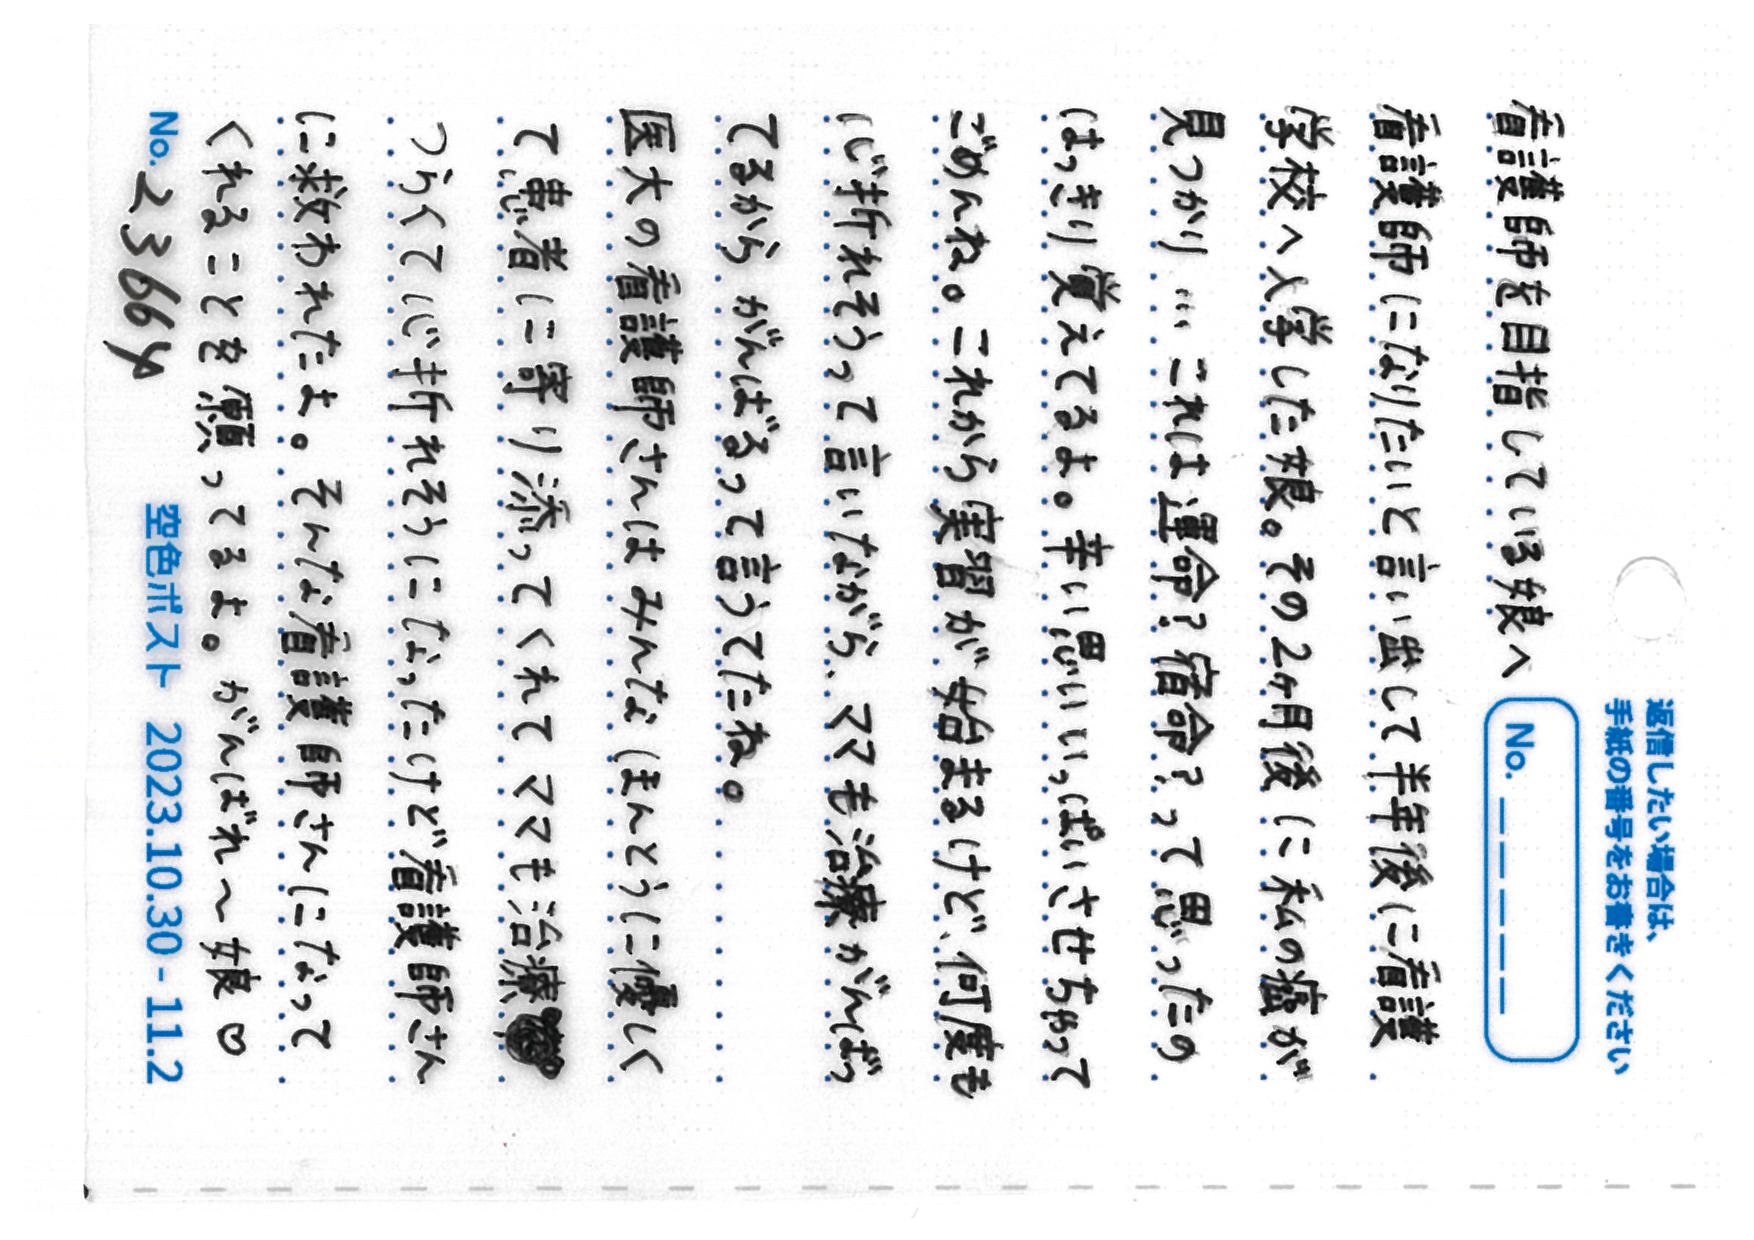 返信したい場合は、
手紙の番号をお書きください
No.
看護師を目指している娘へ
看護師になりたいと言い出して半年後に看護
学校へ入学した娘。その2ヶ月後に私の癌が
見つかり…これは運命?宿命?って思ったの
はっきり覚えてるよ。辛い思いいっぱいさせちゃって
ごめんね。これから実習が始まるけど、何度も
心折れそうって言いながら、ママも治療がんばっ
てるから がんばるって言うてたね。
医大の看護師さんはみんなほんとうに優しく
て、患者に寄り添ってくれて ママも治療
つらくて心折れそうになったけど看護師さん
に救われたよ。そんな看護師さんになって
くれることを願ってるよ。がんばれ〜娘♡
No. 23664
空色ポスト 2023.10.30 - 11.2